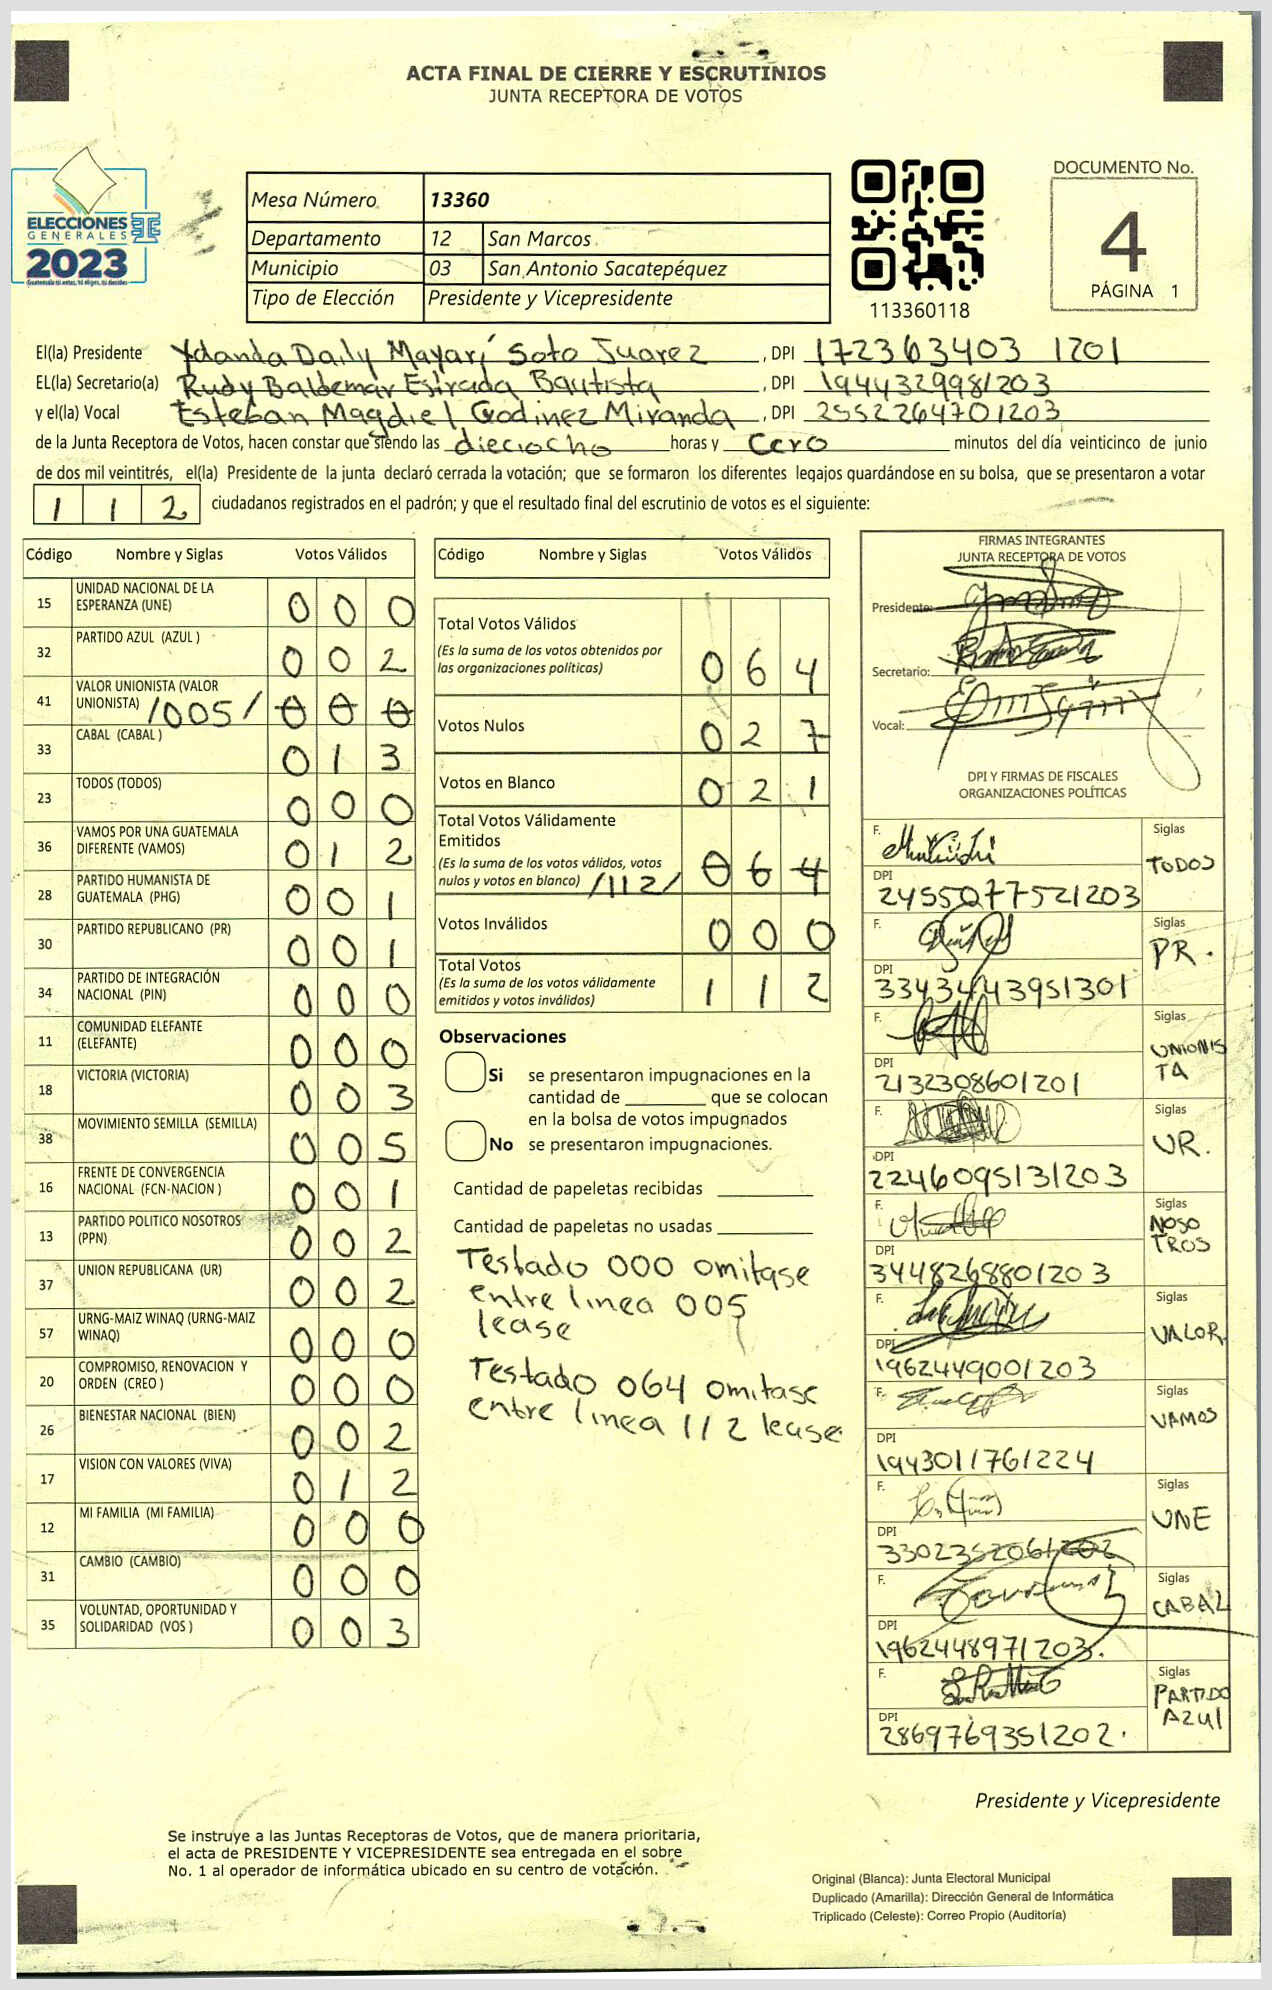 ACTA FINAL DE CIERRE Y ESCRUTINIOS
JUNTA RECEPTORA DE VOTOS
ELECCIONES
GENERALES
2023
Mesa Número 13360
Departamento 12 San Marcos
Municipio 03 San Antonio Sacatepéquez
Tipo de Elección Presidente y Vicepresidente
113360118
DOCUMENTO No.
4
PÁGINA 1
El(la) Presidente Yolanda Daily Mayarí Soto Juarez, DPI 172363403 1201
EL(la) Secretario(a) Rudy Baldemar Estrada Bautista, DPI 1944329981203
y el(la) Vocal Esteban Magdiel Godinez Miranda, DPI 2552264701203
de la Junta Receptora de Votos, hacen constar que siendo las dieciocho horas y cero minutos del día veinticinco de junio
de dos mil veintitrés, el(la) Presidente de la junta declaró cerrada la votación; que se formaron los diferentes legajos guardándose en su bolsa, que se presentaron a votar
112 ciudadanos registrados en el padrón; y que el resultado final del escrutinio de votos es el siguiente:
Código Nombre y Siglas Votos Válidos
15 UNIDAD NACIONAL DE LA ESPERANZA (UNE) 000
32 PARTIDO AZUL (AZUL ) 002
41 VALOR UNIONISTA (VALOR UNIONISTA) /005/ 000
33 CABAL (CABAL ) 013
23 TODOS (TODOS) 000
36 VAMOS POR UNA GUATEMALA DIFERENTE (VAMOS) 012
28 PARTIDO HUMANISTA DE GUATEMALA (PHG) 001
30 PARTIDO REPUBLICANO (PR) 001
34 PARTIDO DE INTEGRACIÓN NACIONAL (PIN) 000
11 COMUNIDAD ELEFANTE (ELEFANTE) 000
18 VICTORIA (VICTORIA) 003
38 MOVIMIENTO SEMILLA (SEMILLA) 005
16 FRENTE DE CONVERGENCIA NACIONAL (FCN-NACION ) 001
13 PARTIDO POLITICO NOSOTROS (PPN) 002
37 UNION REPUBLICANA (UR) 002
57 URNG-MAIZ WINAQ (URNG-MAIZ WINAQ) 000
20 COMPROMISO, RENOVACION Y ORDEN (CREO ) 000
26 BIENESTAR NACIONAL (BIEN) 002
17 VISION CON VALORES (VIVA) 012
12 MI FAMILIA (MI FAMILIA) 000
31 CAMBIO (CAMBIO) 000
35 VOLUNTAD, OPORTUNIDAD Y SOLIDARIDAD (VOS ) 003
Código Nombre y Siglas Votos Válidos
Total Votos Válidos
(Es la suma de los votos obtenidos por
las organizaciones políticas) 064
Votos Nulos 027
Votos en Blanco 021
Total Votos Válidamente
Emitidos
(Es la suma de los votos válidos, votos
nulos y votos en blanco) /112/ 064
Votos Inválidos 000
Total Votos
(Es la suma de los votos válidamente
emitidos y votos inválidos) 112
Observaciones
Si se presentaron impugnaciones en la
cantidad de ________ que se colocan
en la bolsa de votos impugnados
No se presentaron impugnaciones.
Cantidad de papeletas recibidas
Cantidad de papeletas no usadas
Testado 000 omitase
entre linea 005
lease
Testado 064 omitase
entre linea 112 lease
FIRMAS INTEGRANTES
JUNTA RECEPTORA DE VOTOS
Presidente:
Secretario:
Vocal:
DPI Y FIRMAS DE FISCALES
ORGANIZACIONES POLÍTICAS
F. Siglas
TODOS
DPI
2455077521203
F. Siglas
PR.
DPI
3343443951301
F. Siglas
UNIONIS
TA
DPI
2132308601201
F. Siglas
UR.
DPI
2246095131203
F. Siglas
NOSO
TROS
DPI
3448268801203
F. Siglas
VALOR
DPI
1962449001203
F. Siglas
VAMOS
DPI
1943011761224
F. Siglas
UNE
DPI
3302352061202
F. Siglas
CABAL
DPI
1962448971203.
F. Siglas
PARTIDO
AZUL
DPI
2869769351202.
Presidente y Vicepresidente
Se instruye a las Juntas Receptoras de Votos, que de manera prioritaria,
el acta de PRESIDENTE Y VICEPRESIDENTE sea entregada en el sobre
No. 1 al operador de informática ubicado en su centro de votación.
Original (Blanca): Junta Electoral Municipal
Duplicado (Amarilla): Dirección General de Informática
Triplicado (Celeste): Correo Propio (Auditoría)